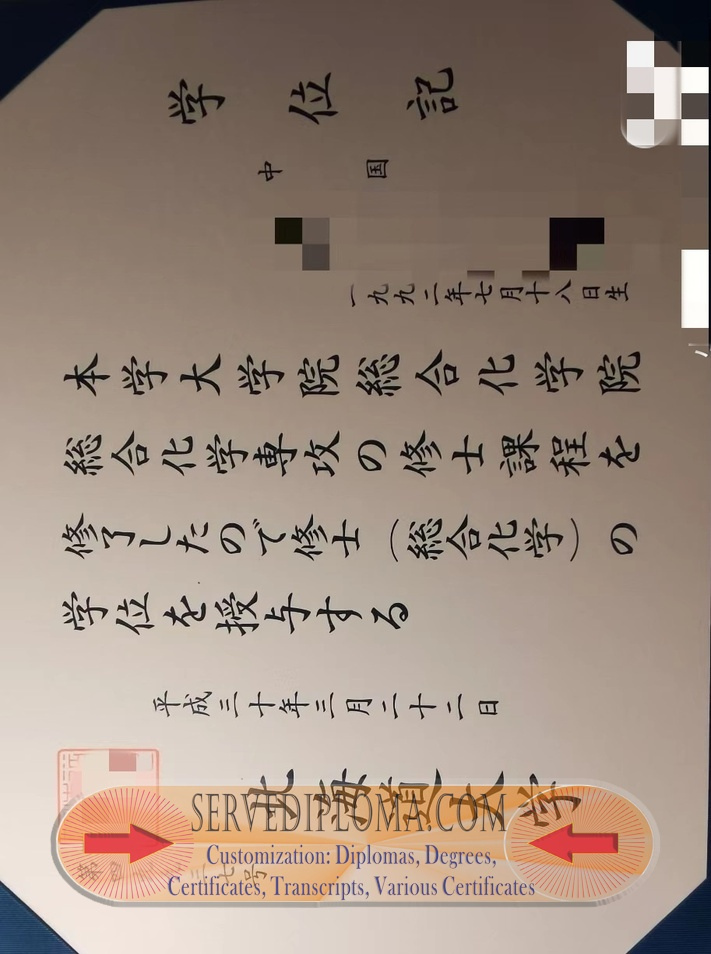 学位記
中国
一九九二年七月十八日生
本学大学院総合化学院
総合化学専攻の修士課程を
修了したので修士(総合化学)の
学位を授与する
平成三十年三月二十二日
北海道大学
SERVEDIPLOMA.COM
Customization: Diplomas, Degrees,
Certificates, Transcripts, Various Certificates